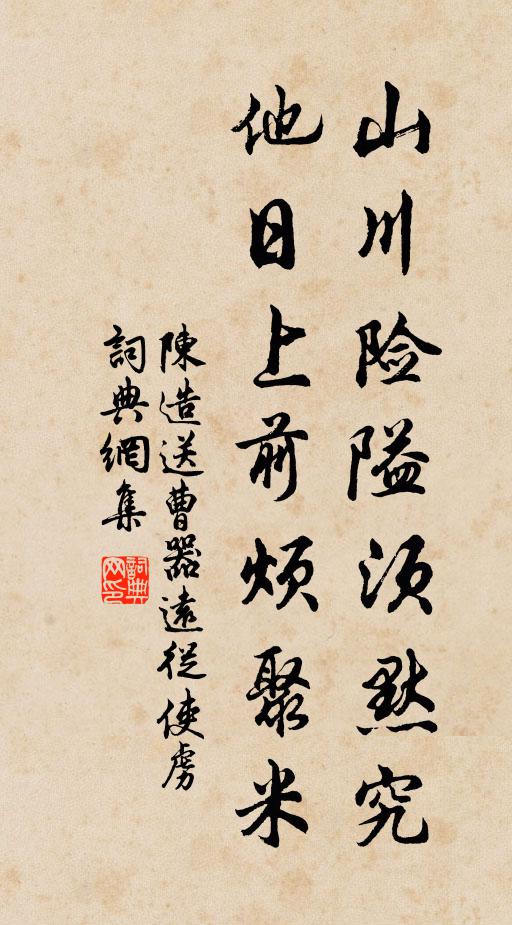 山川险隘须默究
他日上前烦聚米
陳造送曹器遠從使虜
詞典網集
詞典網印